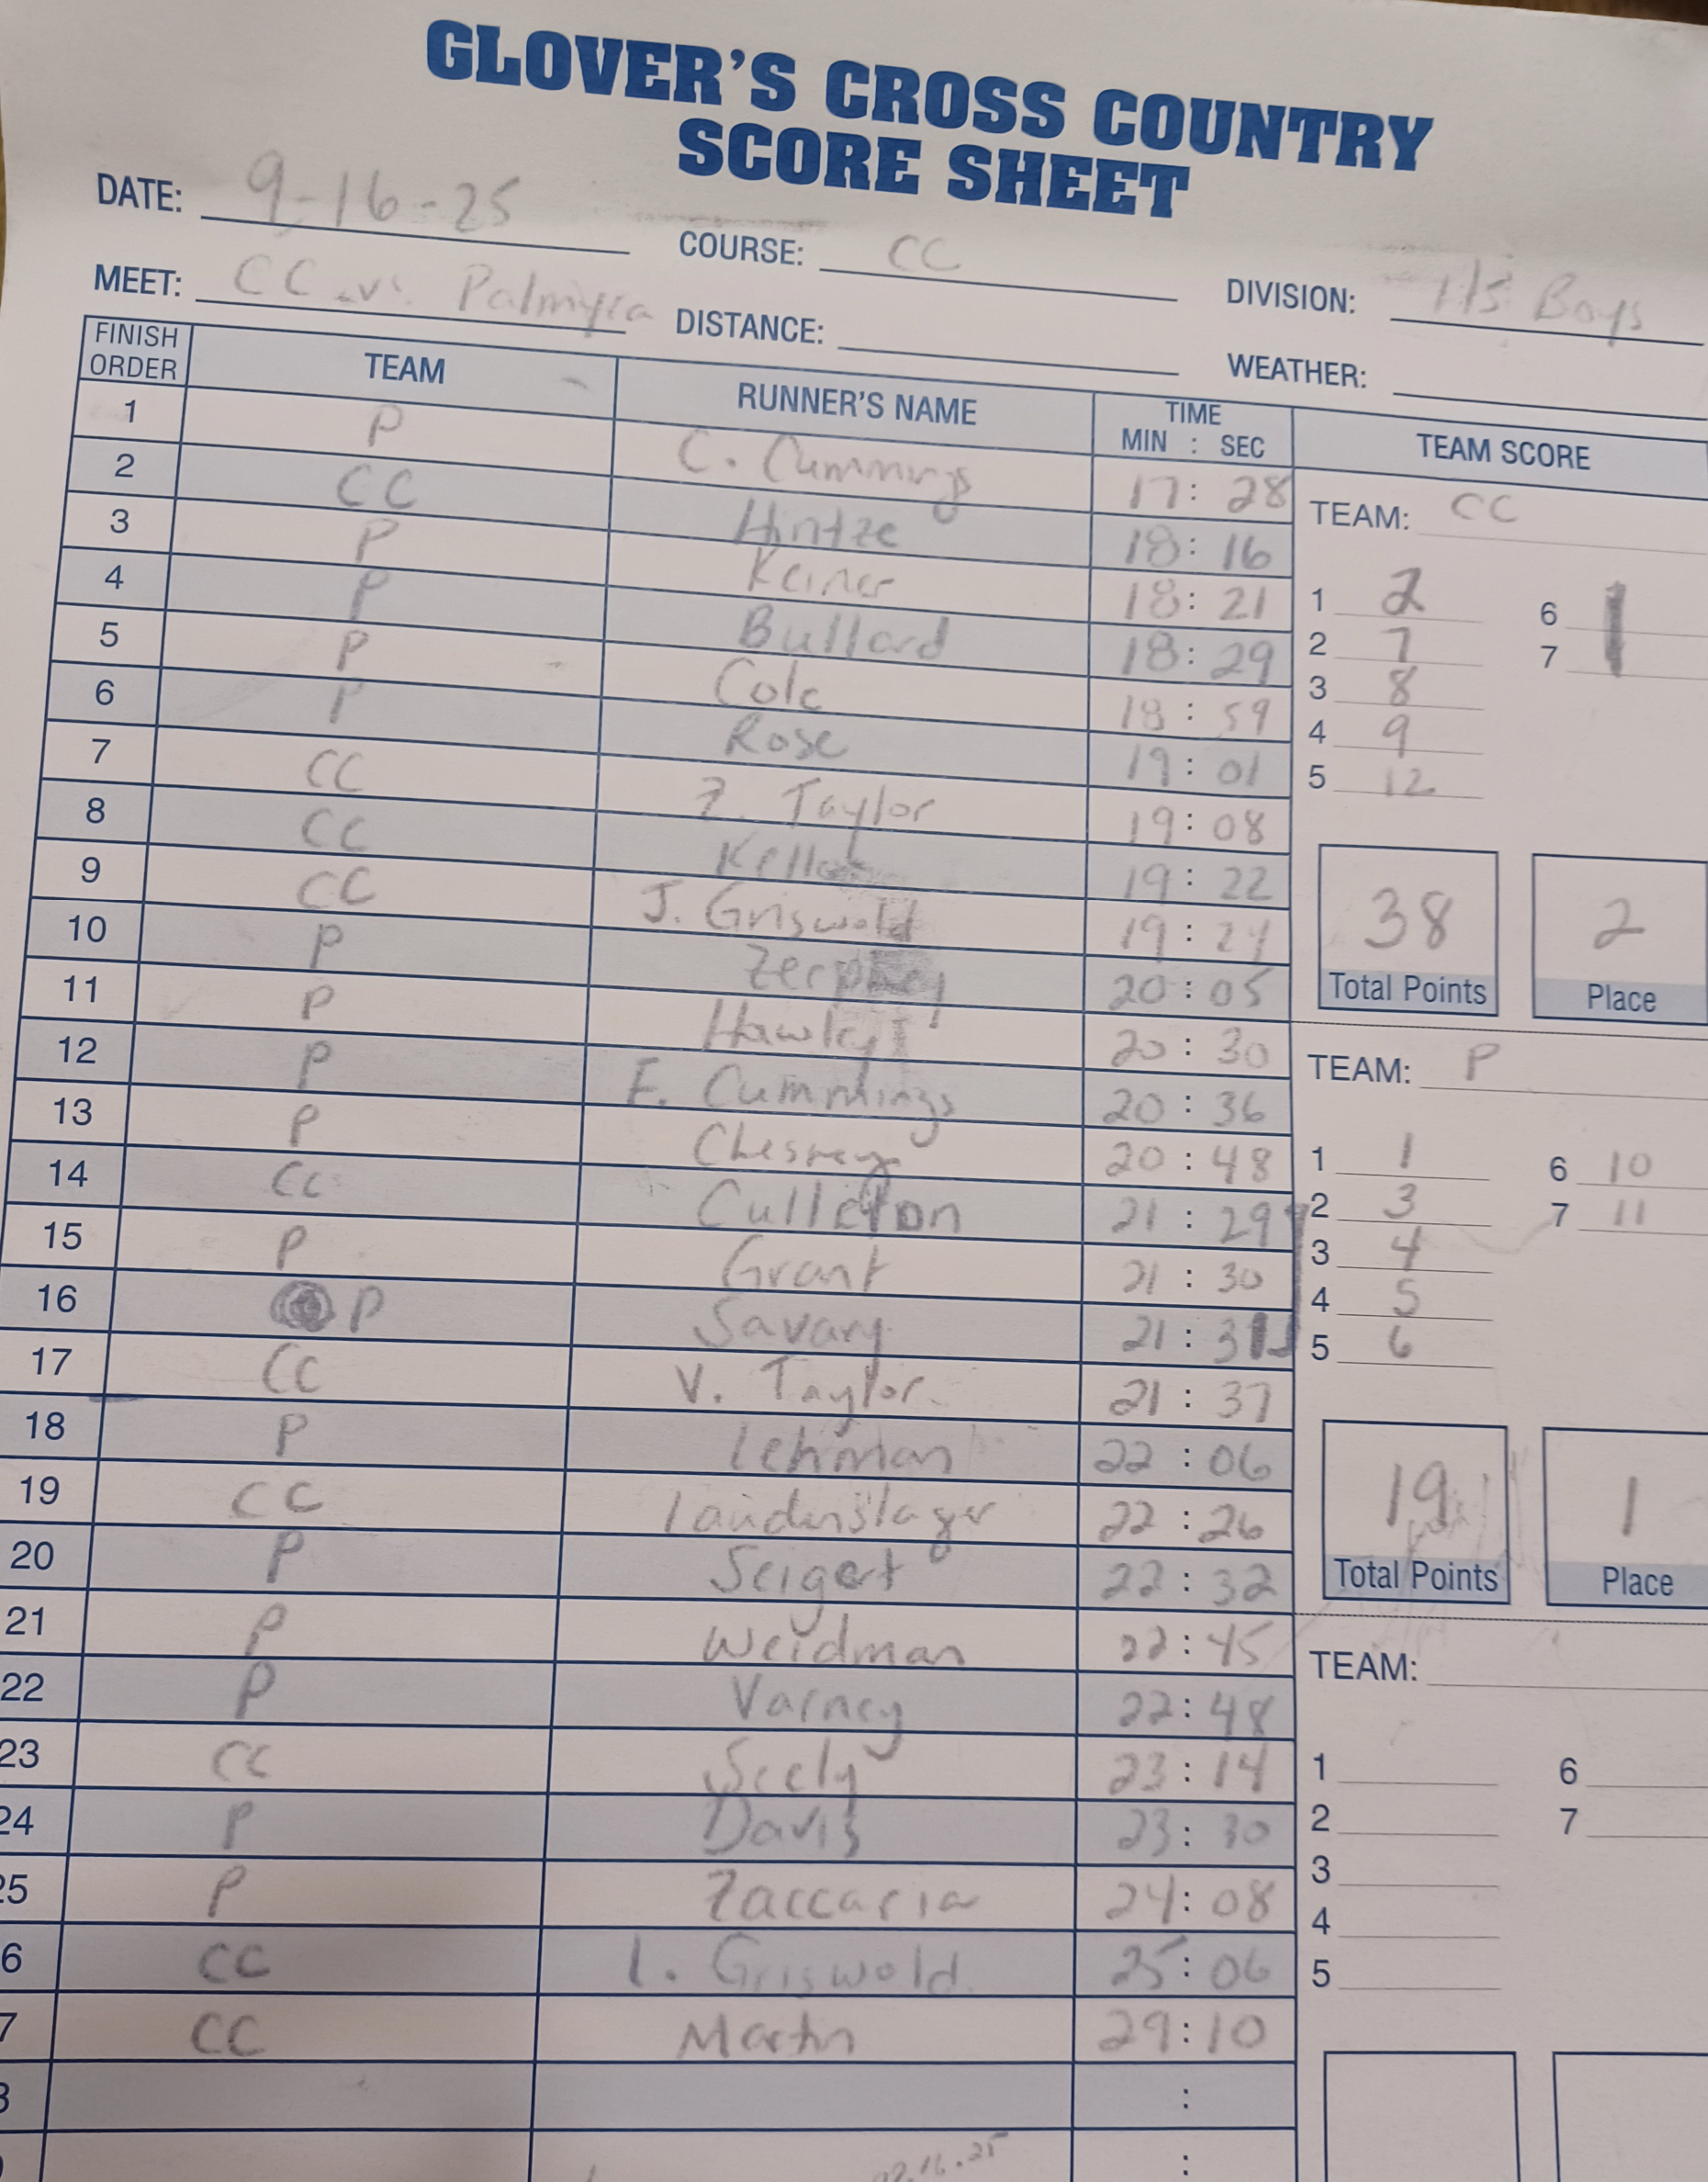 GLOVER'S CROSS COUNTRY
SCORE SHEET
DATE: 9-16-25
COURSE: CC
DIVISION: Boys
MEET: CC vs. Palmyra
DISTANCE:
WEATHER:
FINISH ORDER TEAM RUNNER'S NAME TIME MIN : SEC TEAM SCORE
1 P C. Cummings 17:28
2 CC Hintze 18:16
3 P Keiner 18:21
4 P Bullard 18:29
5 P Cole 18:59
6 P Rose 19:01
7 CC Z. Taylor 19:08
8 CC 19:22
9 CC J. Griswold 19:24
10 P Zerphey 20:05
11 P Hawley 20:30
12 P F. Cummings 20:36
13 P Chesney 20:48
14 CC Culleton 21:29
15 P Grant 21:30
16 P Savary 21:31
17 CC V. Taylor 21:37
18 P Lehman 22:06
19 CC Laudenslager 22:26
20 P Seigert 22:32
21 P Weidman 22:45
22 P Varney 22:48
23 CC Seely 23:14
24 P Davis 23:30
25 P Zaccaria 24:08
6 CC I. Griswold 25:06
7 CC Martin 29:10
:
:
TEAM: CC
1 2 6
2 7 7
3 8
4 9
5 12
38 2
Total Points Place
TEAM: P
1 1 6 10
2 3 7 11
3 4
4 5
5 6
19 1
Total Points Place
TEAM:
1 6
2 7
3
4
5